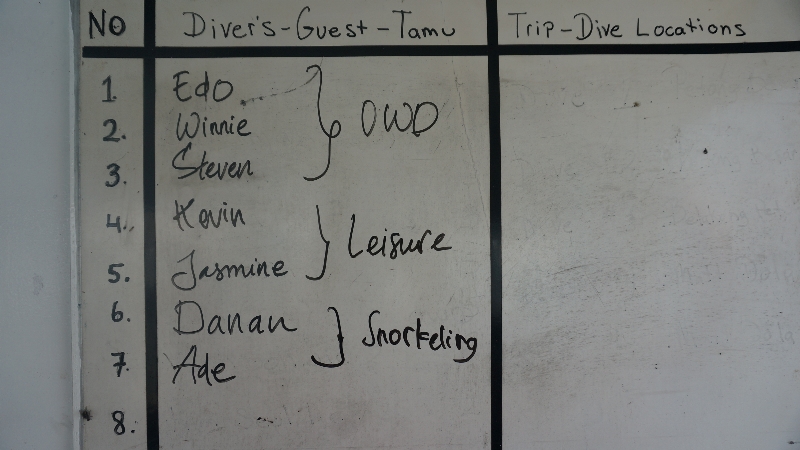 NO Diver's-Guest-Tamu Trip-Dive Locations
1 Edo
2. Winnie OWD
3. Steven
4. Kevin
Leisure
5. Jasmine
6. Danan
Snorkeling
7. Ade
8.